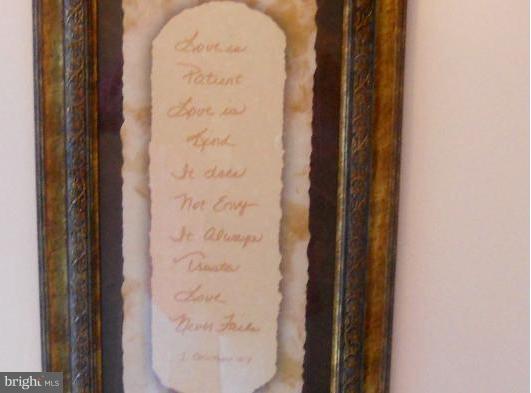 Love is
Patient
Love is
Kind
It does
Not Envy
It Always
Trusts
Love
Never Fails
bright MLS